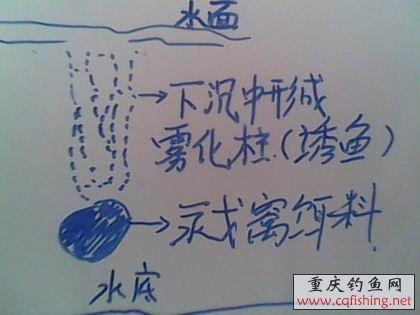 水面
下沉中形成
雾化柱(诱鱼)
窝饵料
水底
重庆钓鱼网
www.cqfishing.net